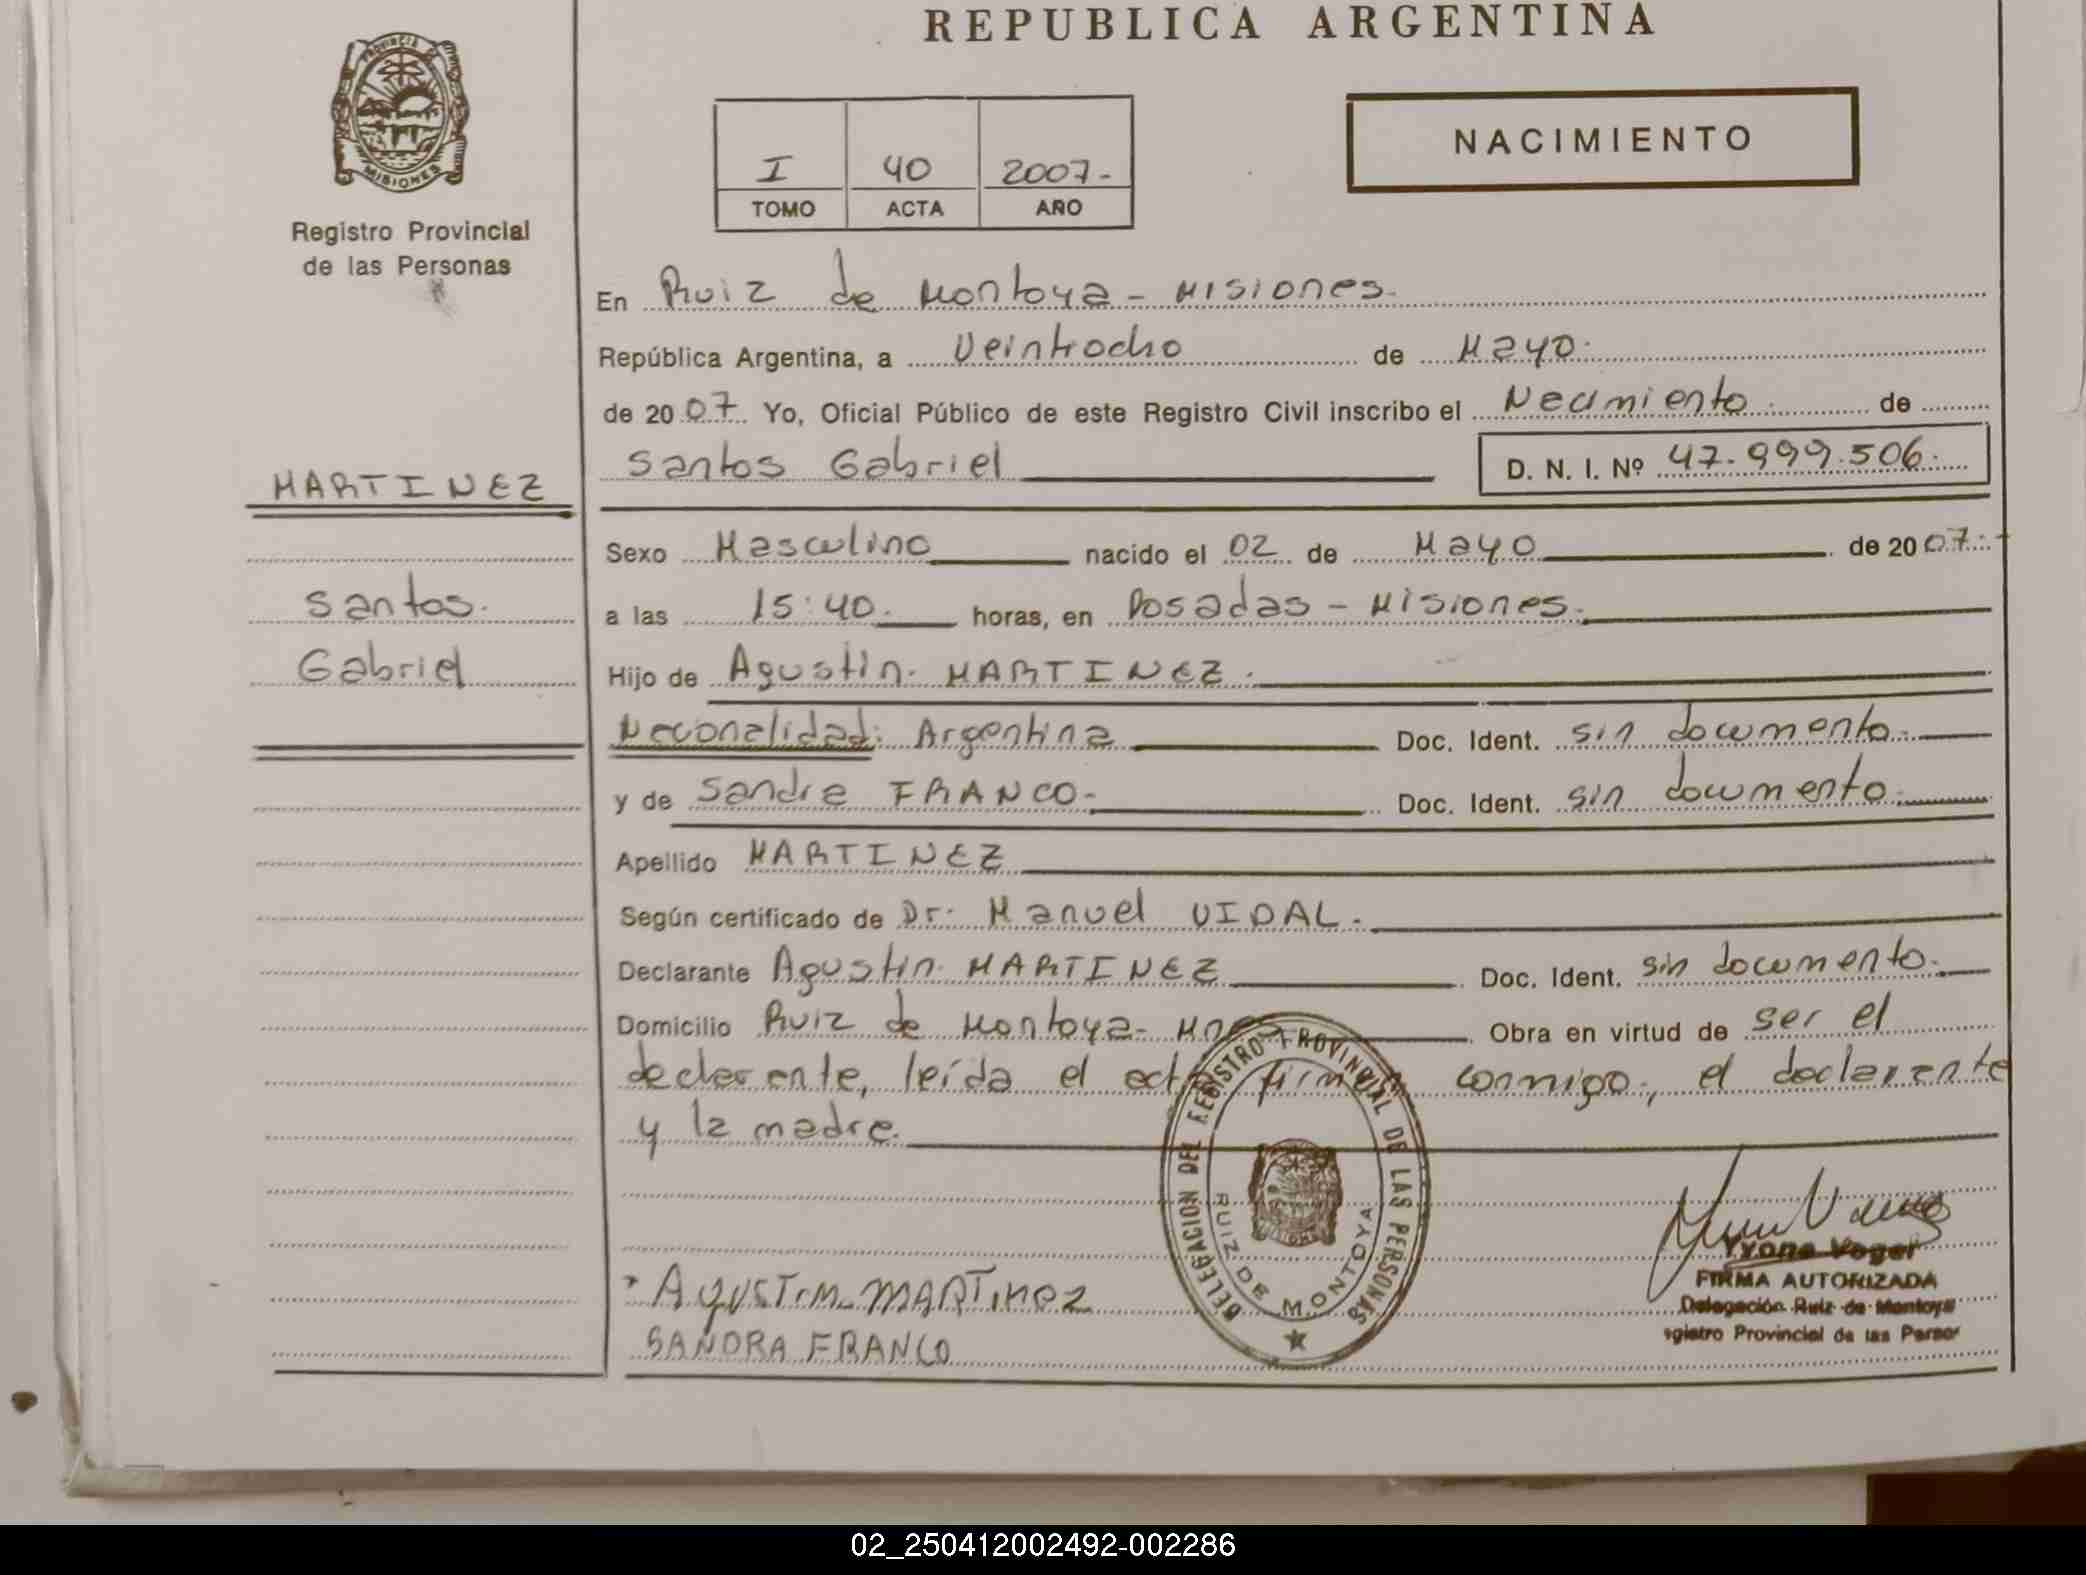 REPUBLICA ARGENTINA
PROVINCIA DE MISIONES
NACIMIENTO
I 40 2007.-
TOMO ACTA AÑO
Registro Provincial
de las Personas
En Ruiz de Montoya - Misiones.
República Argentina, a Veintiocho de Mayo.
de 2007. Yo, Oficial Público de este Registro Civil inscribo el Nacimiento. de
Santos Gabriel D. N. I. Nº 47.999.506.
MARTINEZ
Santos.
Gabriel
Sexo Masculino nacido el 02 de Mayo de 2007.-
a las 15:40. horas, en Posadas - Misiones.
Hijo de Agustin. MARTINEZ.
Nacionalidad: Argentina Doc. Ident. sin documento.
y de Sandra FRANCO.- Doc. Ident. sin documento.
Apellido MARTINEZ
Según certificado de Dr. Manuel VIDAL.
Declarante Agustin. MARTINEZ Doc. Ident. sin documento.
Domicilio Ruiz de Montoya- Mnes Obra en virtud de ser el
declarante, leída el acta firman conmigo, el declarante
y la madre.
DELEGACION DEL REGISTRO PROVINCIAL DE LAS PERSONAS
RUIZ DE MONTOYA
AGUSTIN MARTINEZ
SANDRA FRANCO
Yvone Voger
FIRMA AUTORIZADA
Delegación Ruiz de Montoya
gistro Provincial de las Person
02_250412002492-002286